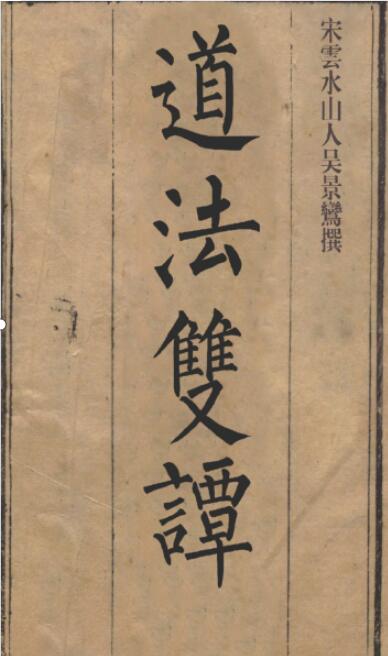 宋雲水山人吳景鸞撰
道法雙譚